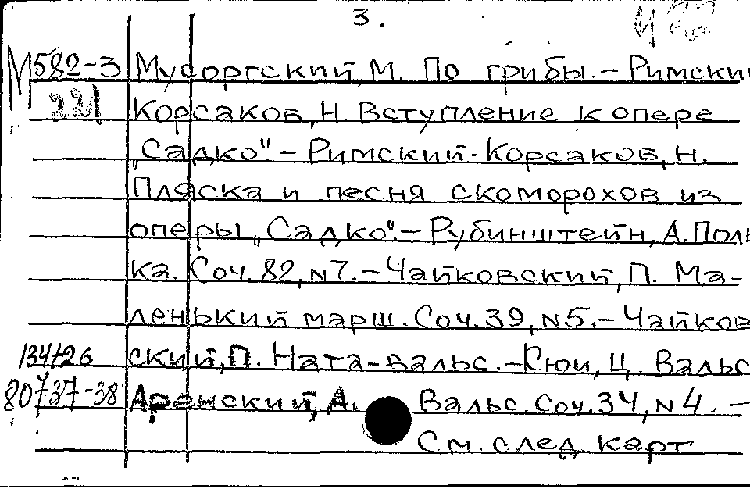 3.
М582-3 Мусоргский, М. По грибы. – Римский
221 Корсаков, Н. Вступление к опере
„Садко" – Римский-Корсаков, Н.
Пляска и песня скоморохов из
оперы „Садко". – Рубинштейн, А. Поль
ка. Соч. 82, N7. – Чайковский, П. Ма-
ленький марш. Соч. 39, N5. – Чайков
134126 ский, П. Ната-вальс. – Кюи, Ц. Вальс
80737-38 Аренский, А. Вальс. Соч. 34, N4. –
См. след карт